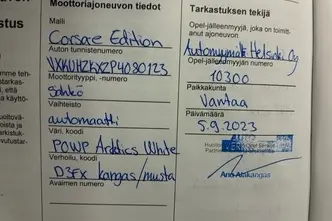 Moottoriajoneuvon tiedot
Malli
Corsa-e Edition
Auton tunnistenumero
VXKUHZKXZP4080123
Moottorityyppi, -numero
Sähkö
Vaihteisto
automaatti
Väri, koodi
P0WP Arctics White
Verhoilu, koodi
D3FX kangas/musta
Avaimen numero
Tarkastuksen tekijä
Opel-jälleenmyyjä, joka on toimit.
anut ajoneuvon
Automyynti Helsinki Oy
Opel-jälleenmyyjän numero
10300
Paikkakunta
Vantaa
Päivämäärä
5.9.2023
Ano Alakangas